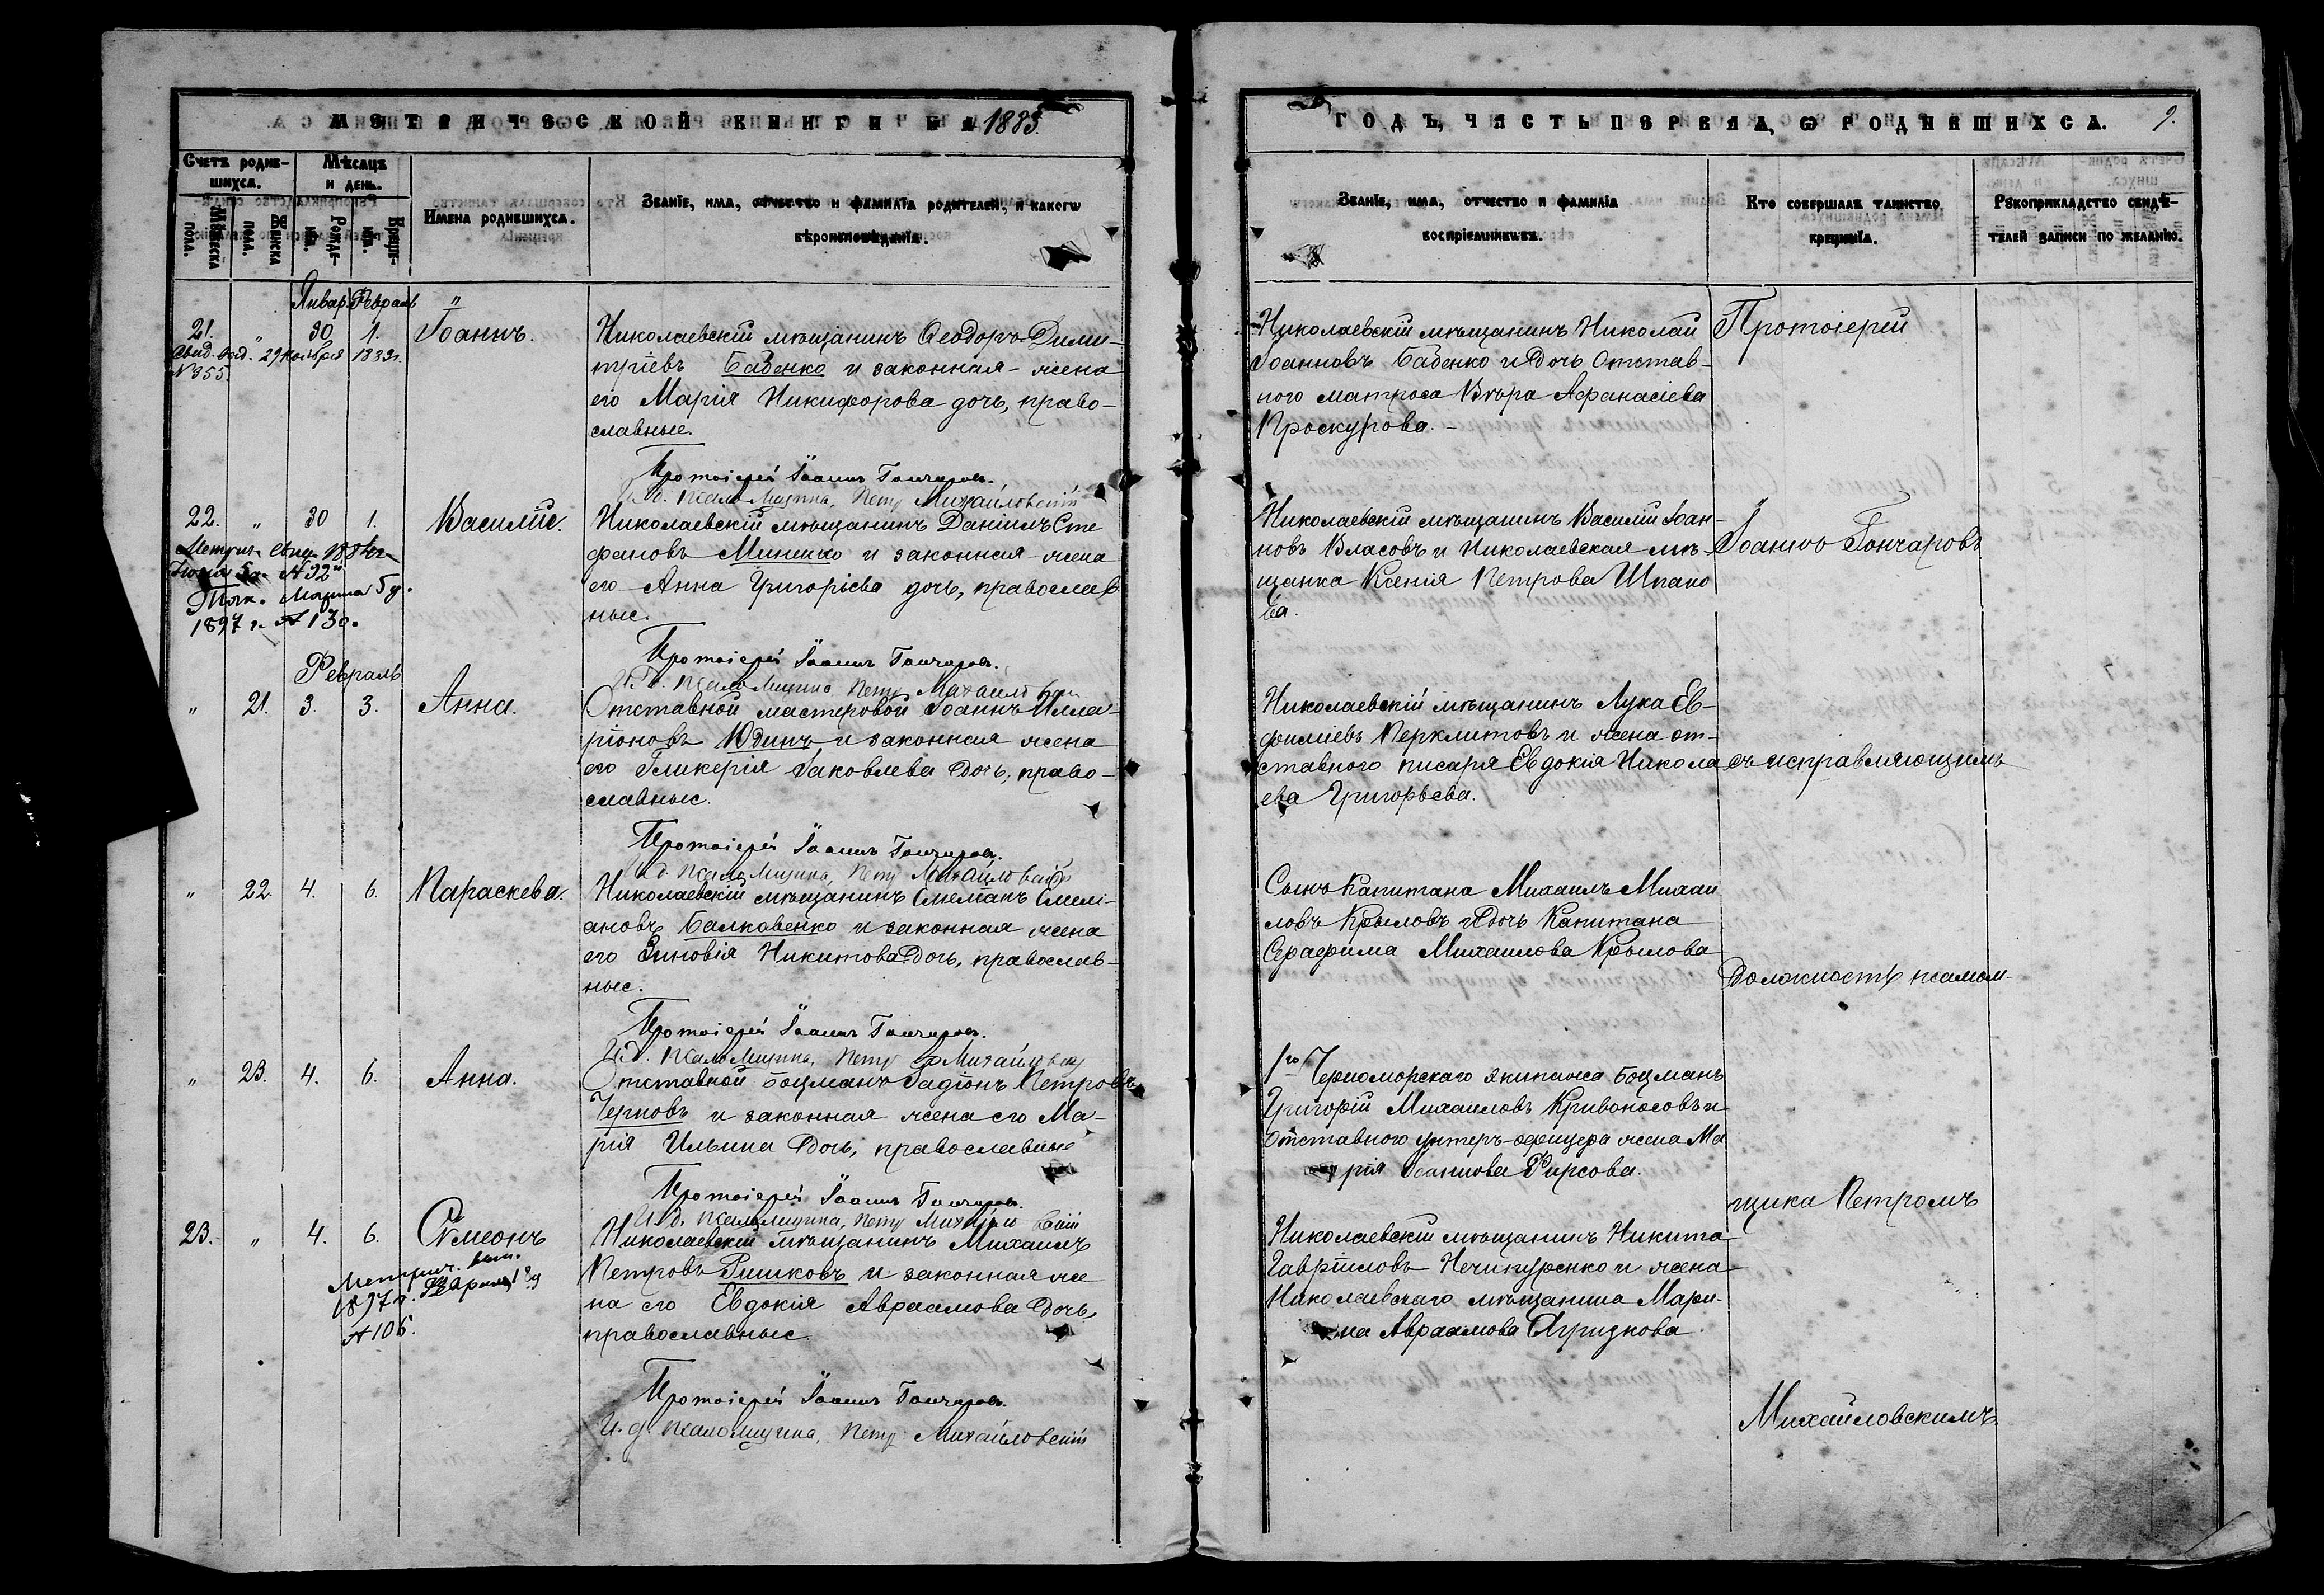 МЕТРИЧЕСКОЙ КНИГИ НА 1883.
Счетъ родив-
шихся.
Мѣсяцъ
и день.
Мужеска
пола.
Женска
пола.
Рожде-
нія.
Креще-
нія.
Имена родившихся.
Званіе, имя, отчество и фамилія родителей, и какого
вѣроисповѣданія.
Январ. Февраль
21. " 30 1. Іоаннъ.
Свид. выд. 29 ноября 1883г.
№ 355.
Николаевскій мѣщанинъ Ѳеодоръ Дими-
тріевъ Бабенко и законная жена
его Марія Никифорова дочь, право-
славные.
Протоіерей Іоаннъ Гончаровъ.
И.д. псаломщика, Петръ Михайловскій
22. " 30 1. Василій.
Метрич. свид.
№ 92
1897 г. № 130.
Николаевскій мѣщанинъ Даніилъ Сте
фановъ Миненко и законная жена
его Анна Григоріева дочь, православ
ные.
Протоіерей Іоаннъ Гончаровъ.
И.д. псаломщика, Петръ Михайловскій
Февраль
" 21. 3. 3. Анна.
Отставной мастеровой Іоаннъ Илла-
ріоновъ Юдинъ и законная жена
его Гликерія Іаковлева дочь, право-
славные.
Протоіерей Іоаннъ Гончаровъ.
И.д. псаломщика, Петръ Михайловскій
" 22. 4. 6. Параскева.
Николаевскій мѣщанинъ Емеліанъ Емелі-
ановъ Балковенко и законная жена
его Зиновія Никитова дочь, православ-
ные.
Протоіерей Іоаннъ Гончаровъ.
И.д. псаломщика, Петръ Михайловскій
" 23. 4. 6. Анна.
Отставной боцманъ Родіонъ Петровъ
Черновъ и законная жена его Ма-
рія Ильина дочь, православные
Протоіерей Іоаннъ Гончаровъ.
И.д. псаломщика, Петръ Михайловскій
23. " 4. 6. Сѵмеонъ
Метрич. вып.
1897 г.
№ 106.
Николаевскій мѣщанинъ Михаилъ
Петровъ Ришковъ и законная же
на его Евдокія Авраамова дочь,
православные.
Протоіерей Іоаннъ Гончаровъ.
И.д. псаломщика, Петръ Михайловскій
ГОДЪ, ЧАСТЬ ПЕРВАЯ, Ѡ РОДИВШИХСЯ. 9.
Званіе, имя, отчество и фамилія
воспріемниковъ.
Кто совершалъ таинство
крещенія.
Рукоприкладство свидѣ-
телей записи по желанію.
Николаевскій мѣщанинъ Николай
Іоанновъ Бабенко и дочь отстав-
ного матроса Вѣра Афанасіева
Проскурова.
Николаевскій мѣщанинъ Василій Іоан-
новъ Власовъ и Николаевская мѣ-
щанка Ксенія Петрова Шпако
ва.
Николаевскій мѣщанинъ Лука Ев-
фиміевъ Перклитовъ и жена от-
ставного писаря Евдокія Никола
ева Григорьева.
Сынъ Капитана Михаилъ Михаи
ловъ Крыловъ и дочь Капитана
Серафима Михаилова Крылова
1го Черноморскаго экипажа боцманъ
Григорій Михаиловъ Кривоносовъ и
отставного унтеръ-офицера жена Ма
рія Іоаннова Фирсова.
Николаевскій мѣщанинъ Никита
Гавріиловъ Нечипуренко и жена
Николаевскаго мѣщанина Мари-
на Авраамова Агризкова.
Протоіерей
Іоаннъ Гончаровъ
съ исправляющимъ
должность псалом-
щика Петромъ
Михайловскимъ